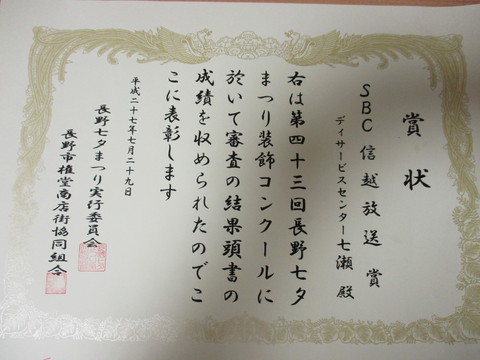 賞状
SBC信越放送賞
デイサービスセンター七瀬 殿
右は第四十三回長野七夕
まつり装飾コンクールに
於いて審査の結果頭書の
成績を収められたのでこ
こに表彰します
平成二十七年七月二十九日
長野七夕まつり実行委員会
長野市権堂商店街協同組合